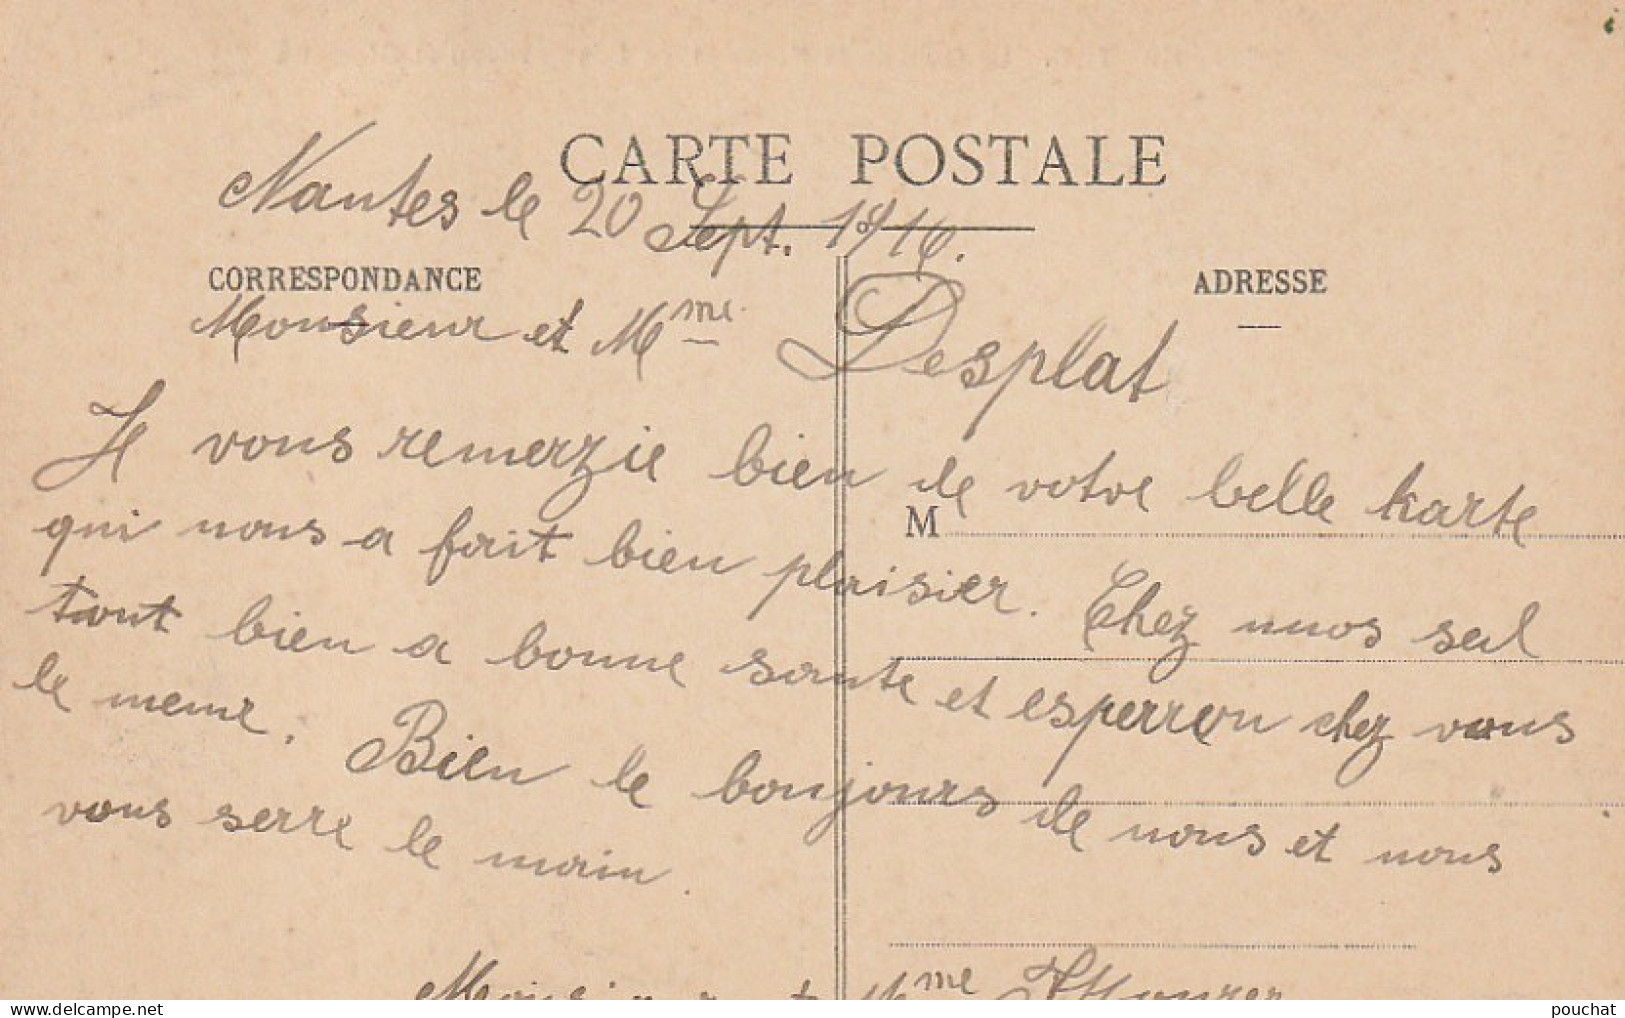 CARTE POSTALE
Nantes le 20 Sept. 1916.
CORRESPONDANCE
ADRESSE
Monsieur et Mme Desplat
Je vous remerzie bien de votre belle karte
M
qui nous a fait bien plaisier. Chez nuos seul
tout bien a bonne sante et esperron chez vous
le meme. Bien le bonjours de nous et nous
vous serre le main.
Monsieur et Mme
www.delcampe.net
pouchat